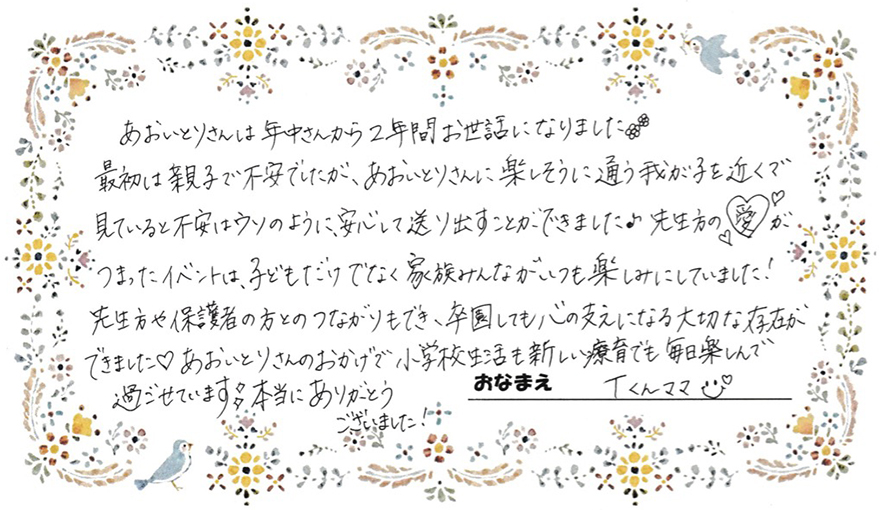 あおいとりさんは年中さんから2年間お世話になりました
最初は親子で不安でしたが、あおいとりさんに楽しそうに通う我が子を近くで
見ていると不安はウソのように、安心して送り出すことができました♪先生方の愛が
つまったイベントは、子どもだけでなく家族みんながいつも楽しみにしていました!
先生方や保護者の方とのつながりもでき、卒園しても心の支えになる大切な存在が
できました♡あおいとりさんのおかげで小学校生活も新しい療育でも毎日楽しんで
過ごせています!本当にありがとう
ございました!
おなまえ Tくんママ